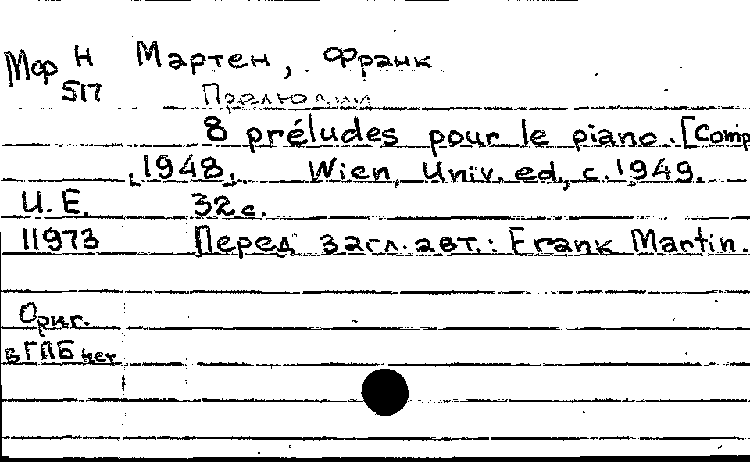 Мф Н Мартен, Франк
517 Прелюдии
8 préludes pour le piano. [Comp
1948. Wien, Univ. ed., c. 1949.
U. E. 32 с.
11973 Перед загл. авт.: Frank Martin.
Ориг.
в ГПБ нет